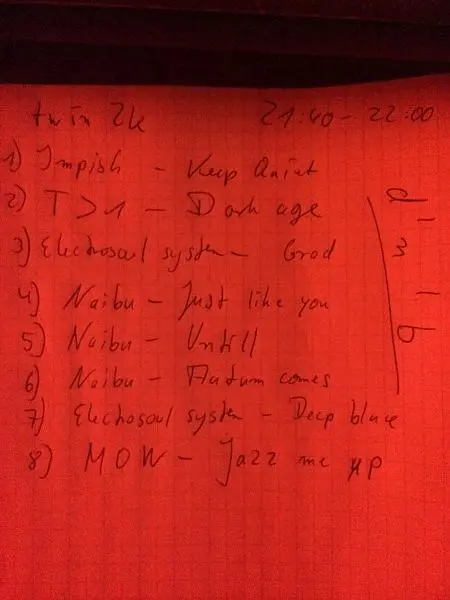 twin 2k 21:40 - 22:00
1) Impish - Keep Quiet
2) T>1 - Dark age
3) Electrosoul system - Grad
4) Naibu - Just like you
5) Naibu - Untill
6) Naibu - Autum comes
7) Electrosoul system - Deep blue
8) MOW - Jazz me up
d'n'b